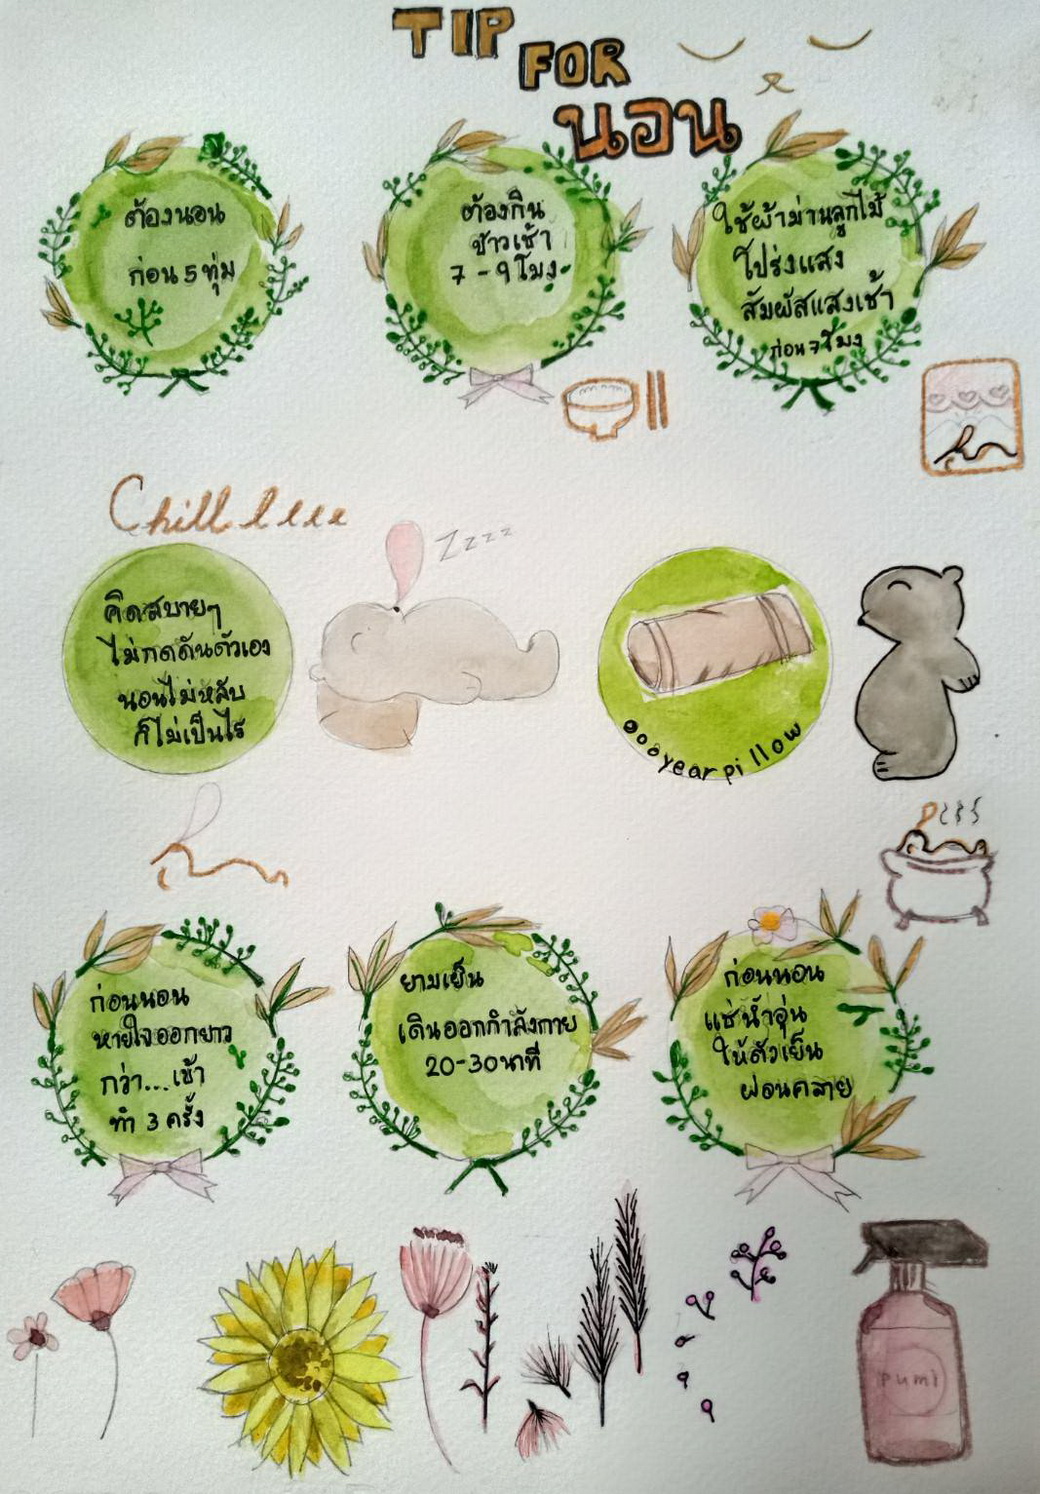 TIP
FOR
นอน
ต้องนอน
ก่อน 5 ทุ่ม
ต้องกิน
ข้าวเช้า
7 - 9 โมง
ใช้ผ้าม่านลูกไม้
โปร่งแสง
สัมผัสแสงเช้า
ก่อน 7 โมง
Chill l e e e
คิดสบายๆ
ไม่กดดันตัวเอง
นอนไม่หลับ
ก็ไม่เป็นไร
Zzzz
year pillow
ก่อนนอน
หายใจออกยาว
กว่า...เข้า
ทำ 3 ครั้ง
ยามเย็น
เดินออกกำลังกาย
20-30นาที
ก่อนนอน
แช่น้ำอุ่น
ให้ตัวเย็น
ผ่อนคลาย
pumi